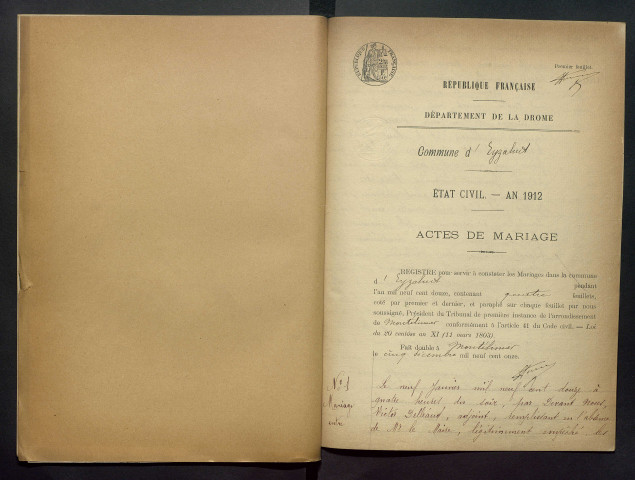 RÉPUBLIQUE FRANÇAISE
Premier feuillet.
RÉPUBLIQUE FRANÇAISE
DÉPARTEMENT DE LA DROME
Commune d' Eygaluit
ÉTAT CIVIL. — AN 1912
ACTES DE MARIAGE
REGISTRE pour servir à constater les Mariages dans la commune
d' Eygaluit pendant
l'an mil neuf cent douze, contenant quatre feuillets,
coté par premier et dernier, et paraphé sur chaque feuillet par nous
soussigné, Président du Tribunal de première instance de l'arrondissement
de Montélimar conformément à l'article 41 du Code civil. — Loi
du 20 ventôse an XI (11 mars 1803)
Fait double à Montélimar
le cinq décembre mil neuf cent onze.
N° 1
Mariage
entre
Le neuf Janvier mil neuf cent douze à
quatre heures du soir, par devant Nous,
Victor Delhaut, adjoint, remplissant en l'absence
de Mr le Maire, légitimement empêché des